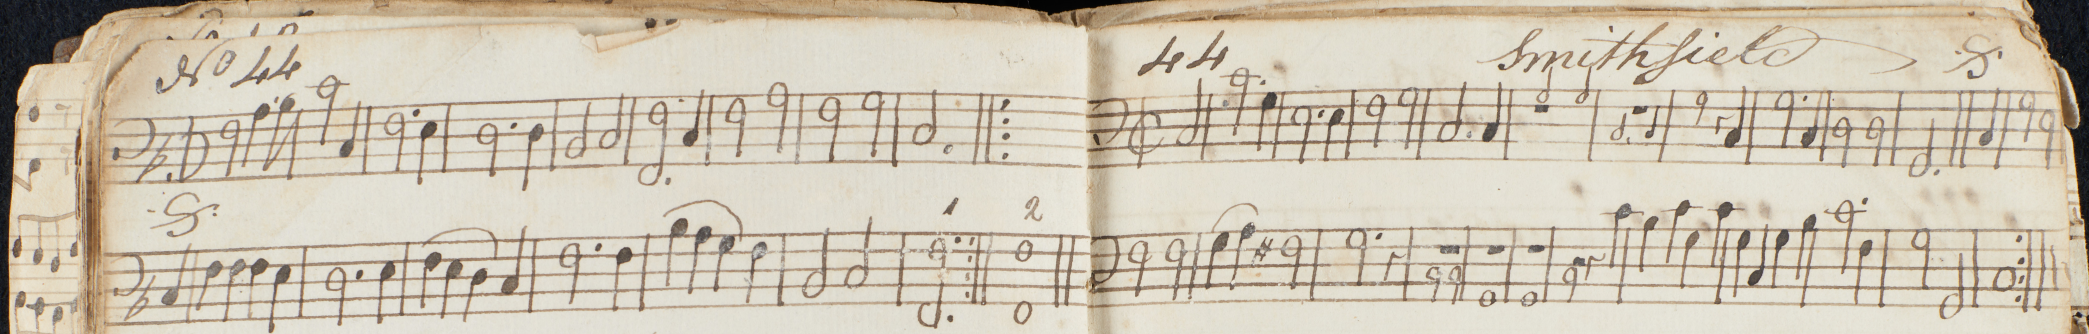 No 44
44 Smithfield .S.
.S.
1 2